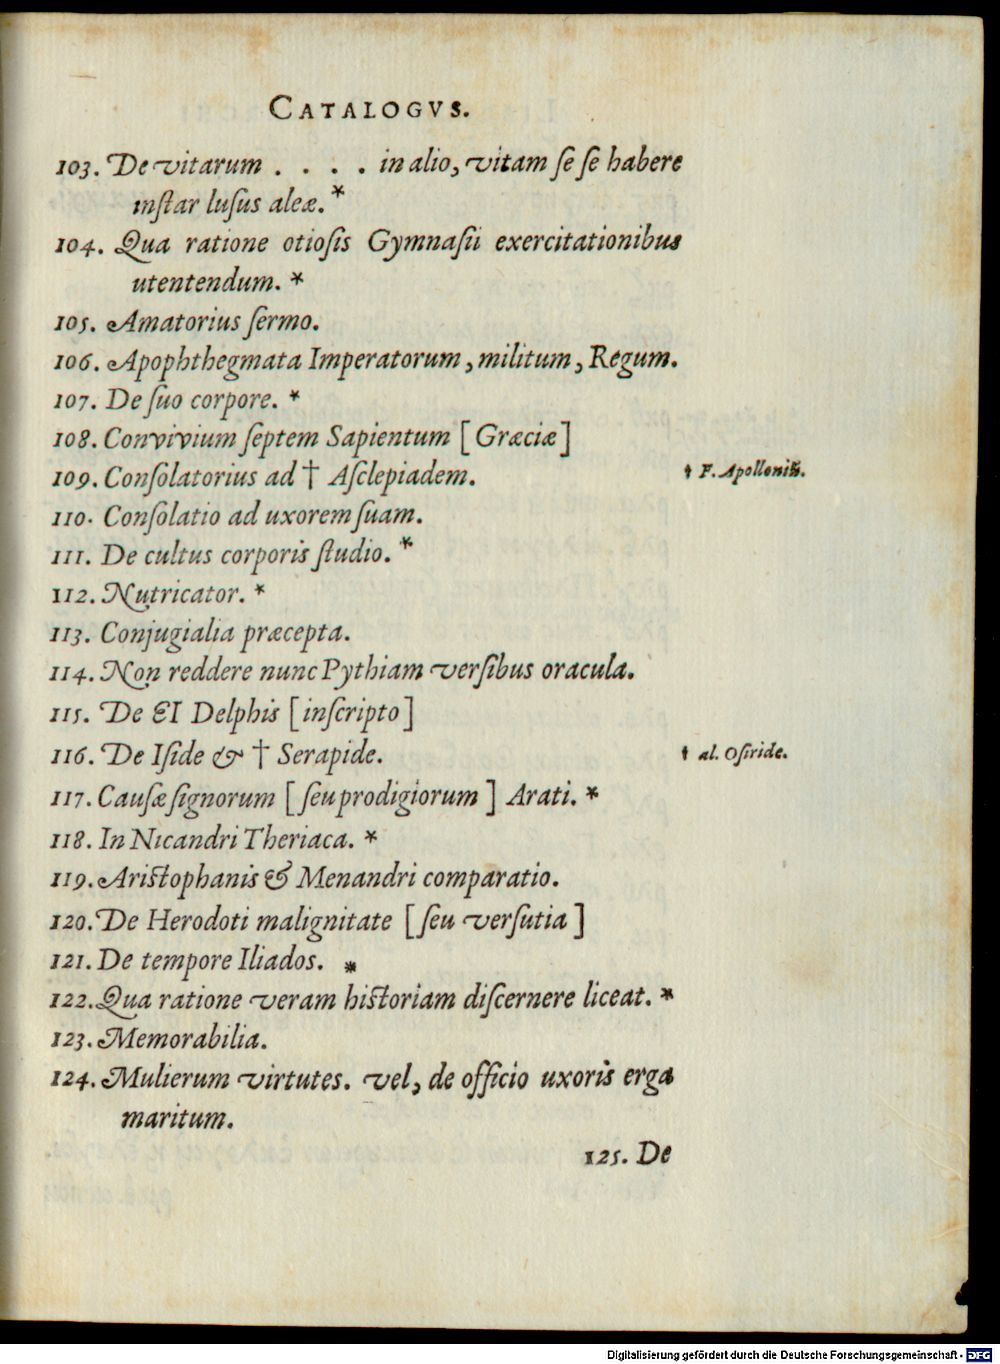 CATALOGVS.
103. De vitarum . . . . in alio, vitam ſe ſe habere
inſtar luſus aleæ. *
104. Qua ratione otioſis Gymnaſii exercitationibus
utentendum. *
105. Amatorius ſermo.
106. Apophthegmata Imperatorum, militum, Regum.
107. De ſuo corpore. *
108. Convivium ſeptem Sapientum [Græciæ]
109. Conſolatorius ad † Aſclepiadem.
† F. Apollonium.
110. Conſolatio ad uxorem ſuam.
111. De cultus corporis ſtudio. *
112. Nutricator. *
113. Conjugialia præcepta.
114. Non reddere nunc Pythiam verſibus oracula.
115. De EI Delphis [inſcripto]
116. De Iſide & † Serapide.
† al. Oſiride.
117. Cauſæ ſignorum [ſeu prodigiorum] Arati. *
118. In Nicandri Theriaca. *
119. Ariſtophanis & Menandri comparatio.
120. De Herodoti malignitate [ſeu verſutia]
121. De tempore Iliados. *
122. Qua ratione veram hiſtoriam diſcernere liceat. *
123. Memorabilia.
124. Mulierum virtutes. vel, de officio uxoris erga
maritum.
125. De
Digitalisierung gefördert durch die Deutsche Forschungsgemeinschaft - DFG